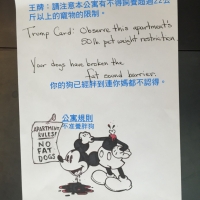 王牌：請注意本公寓有不得飼養超過22公
斤以上的寵物的限制。
Trump Card: Observe this apartment's
50 lb pet weight restriction.
Your dogs have broken the
fat sound barrier.
你的狗已經胖到連你媽都不認得。
公寓規則
不准養胖狗
APARTMENT
RULES:
NO
FAT
DOGS